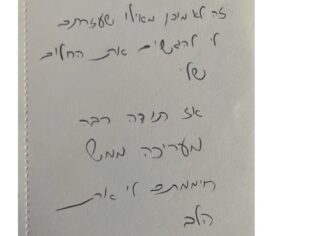 זה לא מובן מאילו שעזרתם
לי להגשים את החלום
שלי
אז תודה רבה
מעריכה ממש
חיממתם לי את
הלב